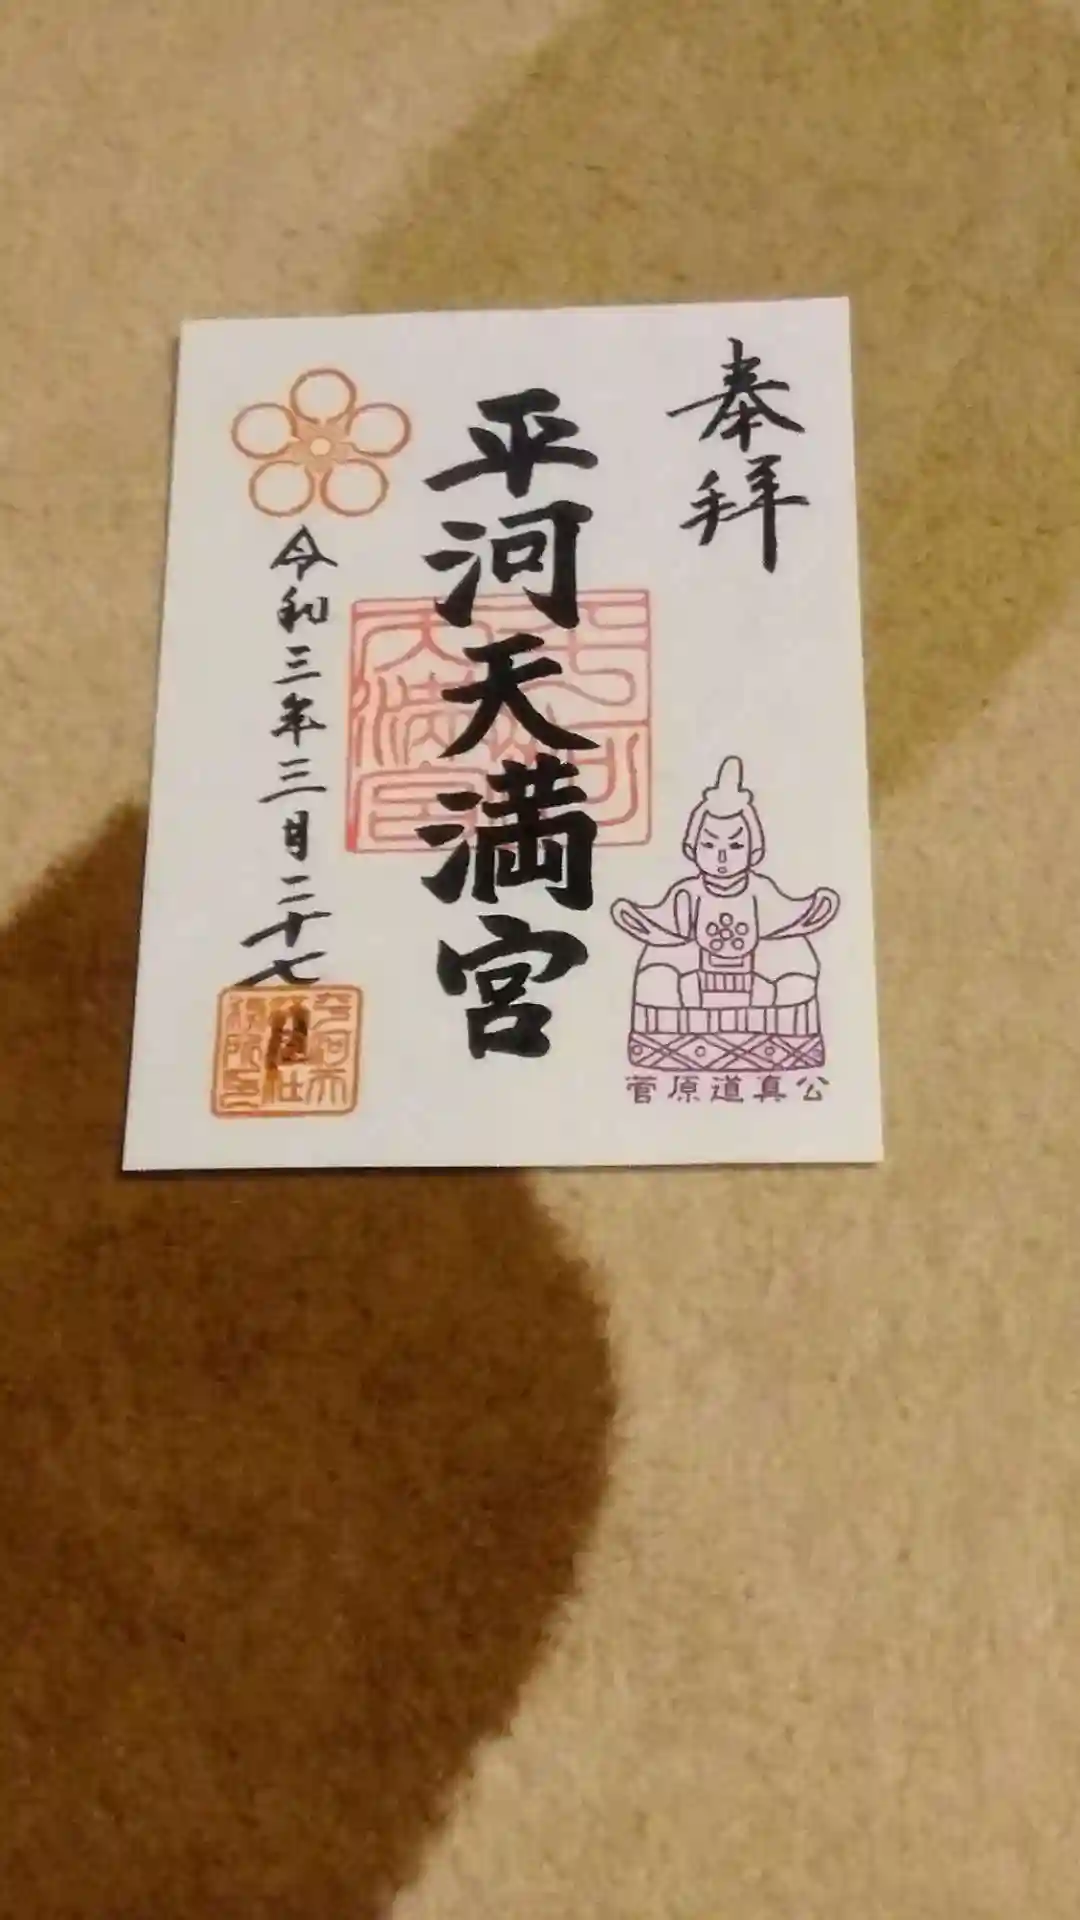 奉拝
平河天満宮
平河
天満宮
令和三年三月二十七
菅原道真公